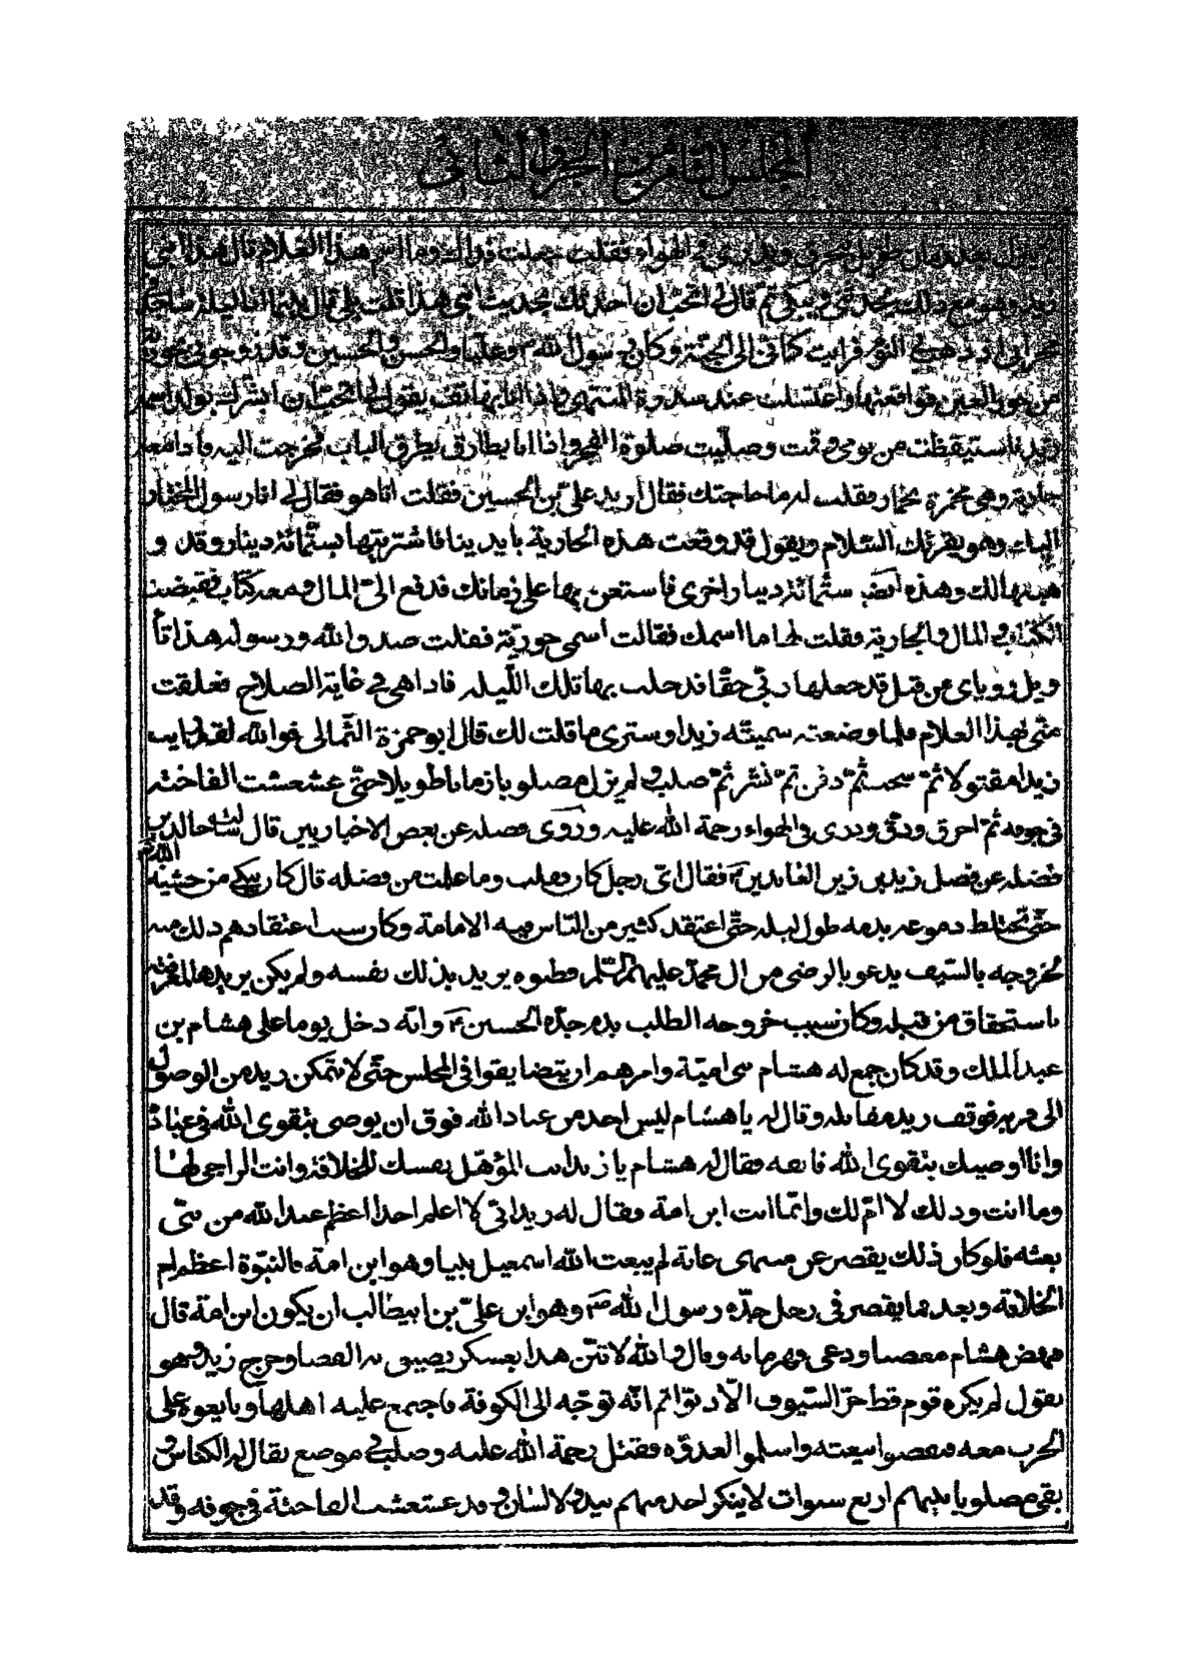 المجلس الثامن من الجزو الثانى
فقلت جعلت فداك وما اسم هذا الغلام قال هذا ابنى
زيد وهو مع ذلك يحدثنى ويبكى ثم قال لى اتحب ان احدثك بحديث ابنى هذا قلت بلى قال بينما انا ليلة ساجد
النوم فرايت كانى فى الجنة وكان رسول الله ص وعليا والحسن والحسين وقد زوجونى حورية
من حور العين فواقعتها واغتسلت عند سدرة المنتهى واذا انا بهاتف يقول لى اتحب ان ابشرك بولد اسمه
زيد فاستيقظت من نومى وقمت وصليت صلوة الفجر واذا انا بطارق يطرق الباب فخرجت اليه واذا معه
جارية وهى مخمرة بخمار وقلت له ما حاجتك فقال اريد على بن الحسين فقلت انا هو فقال لى انا رسول المختار
اليك وهو يقرئك السلام ويقول قد وقعت هذه الجارية بايدينا فاشتريتها بستمائة دينار وقد و
هبتها لك وهذه ايضا ستمائة دينار اخرى فاستعن بها على زمانك فدفع الى المال ومعه كتاب فقبضت
الكتاب والمال والجارية وقلت لها ما اسمك فقالت اسمى حورية فقلت صدق الله ورسوله هذا تأ
ويل رؤياى من قبل قد جعلها ربى حقا فدخلت بها تلك الليلة فاذا هى فى غاية الصلاح فعلقت
منى بهذا الغلام فلما وضعته سميته زيدا وسترى ما قلت لك قال ابو حمزة الثمالى فوالله لقد رايت
زيدا مقتولا ثم سحب ثم دفن ثم نشر ثم صلب ولم يزل مصلوبا زمانا طويلا حتى عشعشت الفاختة
فى جوفه ثم احرق ودق وذرى فى الهواء رحمة الله عليه وروى فضله عن بعض الاخباريين قال
فضله عن فضل زيد بن زين العابدين ع فقال اى رجل كان وقلب وما علمت من فضله قال كان يبكى من خشية الله
حتى تختلط دموعه بدمه طول ليله حتى اعتقد كثير من الناس فيه الامامة وكان سبب اعتقادهم ذلك منه
خروجه بالسيف يدعو بالرضى من ال محمد عليهم السلم فظنوه يريد بذلك نفسه ولم يكن يريدها لمعرفته
باستحقاق من قبله وكان سبب خروجه الطلب بدم جده الحسين ع وانه دخل يوما على هشام بن
عبد الملك وقد كان جمع له هشام بنى امية وامرهم ان يتضايقوا فى المجلس حتى لا يتمكن زيد من الوصول
الى قربه فوقف زيد مقابله وقال له يا هشام ليس احد من عباد الله فوق ان يوصى بتقوى الله فى عباده
وانا اوصيك بتقوى الله فاتقه فقال له هشام يا زيد انت المؤهل نفسك للخلافة وانت الراجى لها
وما انت وذلك لا ام لك وانما انت ابن امة فقال له زيد انى لا اعلم احدا اعظم عند الله من نبى
بعثه فلو كان ذلك يقصر عن منتهى غاية لم يبعث الله اسمعيل نبيا وهو ابن امة فالنبوة اعظم ام
الخلافة وبعد فما يقصر فى رجل جده رسول الله ص وهو ابن على بن ابيطالب ان يكون ابن امة قال
فنهض هشام مغضبا ودعى قهرمانه وقال والله لا تبن هذا بعسكر يضيق به الفضا وخرج زيد وهو
يقول لم يكره قوم قط حر السيوف الا ذلوا ثم انه توجه الى الكوفة فاجتمع عليه اهلها وبايعوه على
الحرب معه فنقضوا بيعته واسلموا لعدوه فقتل رحمة الله عليه وصلب فى موضع يقال له الكناس و
بقى مصلوبا بينهم اربع سنوات لا ينكر احد منهم بيد ولا لسان وقد عشعشت الفاختة فى جوفه وقد